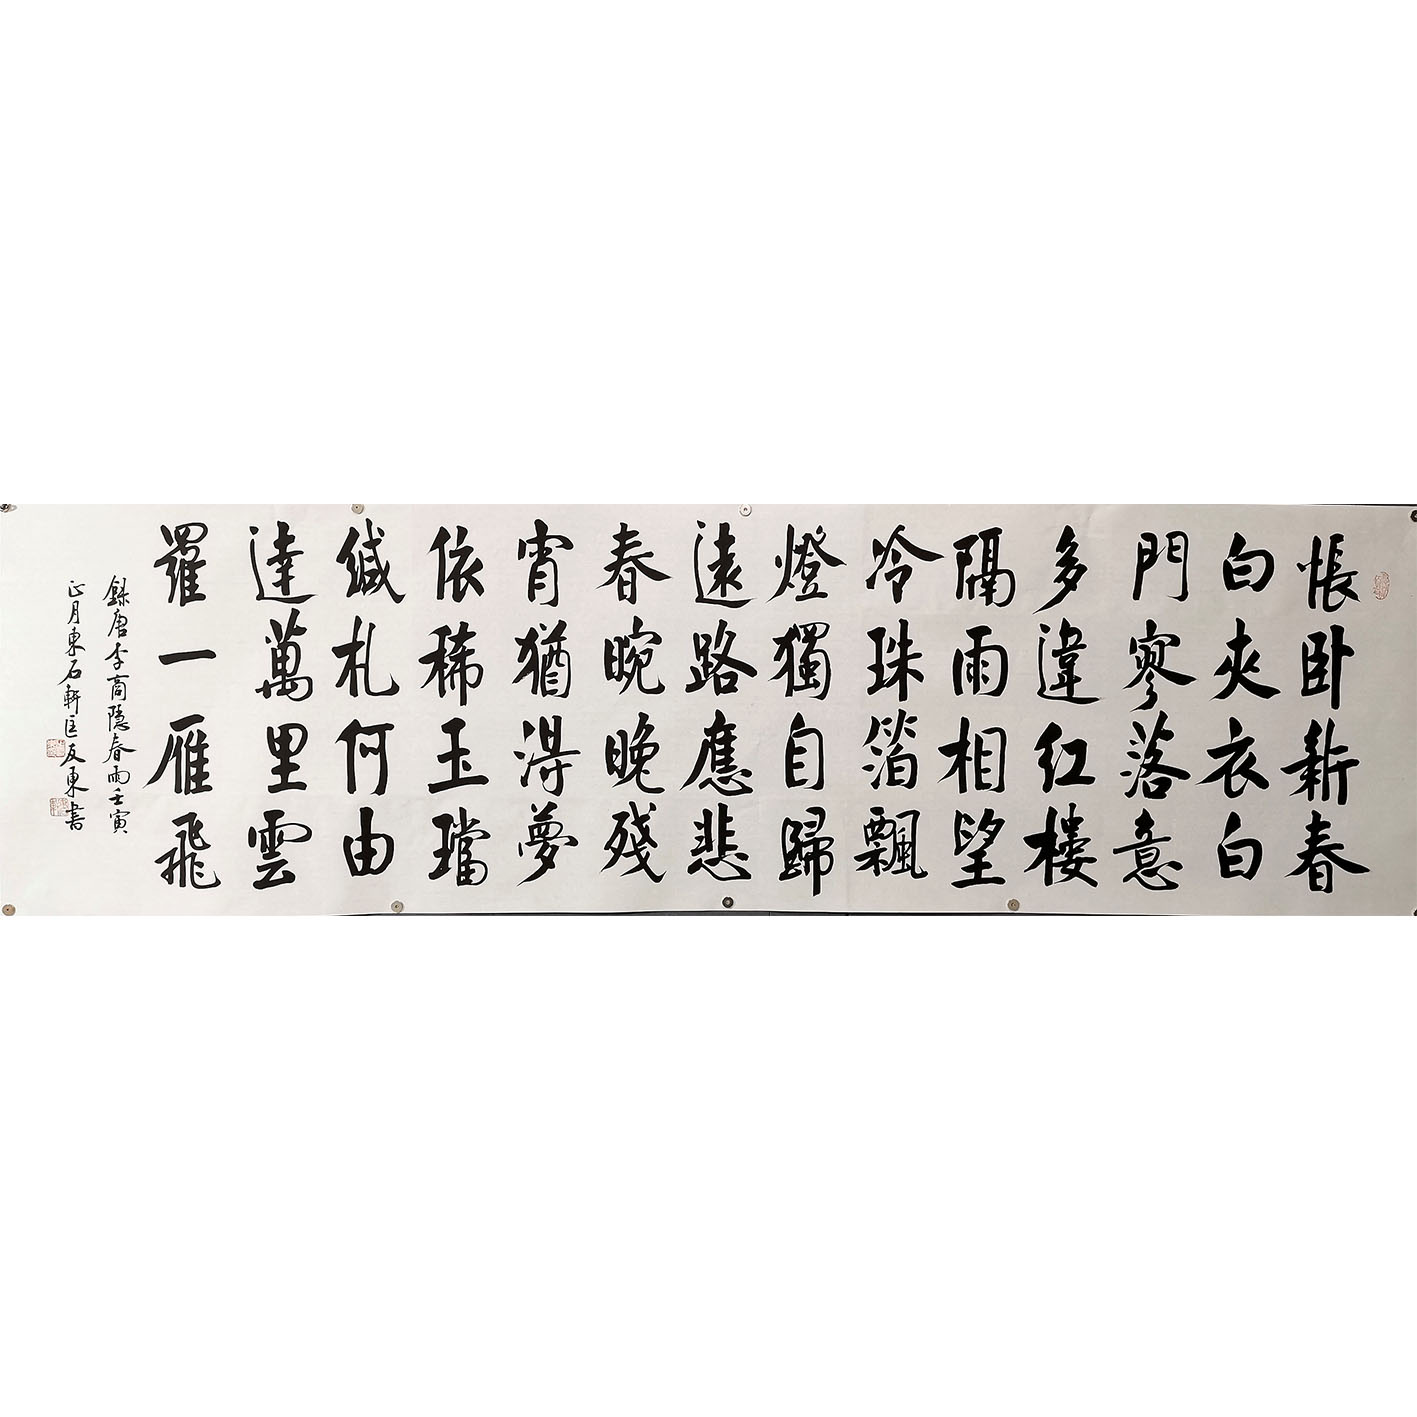 悵卧新春
白夾衣白
門寥落意
多違紅樓
隔雨相望
冷珠箔飄
燈獨自歸
遠路應悲
春晼晚殘
宵猶淂夢
依稀玉璫
緘札何由
達萬里雲
羅一雁飛
録唐李商隐春雨壬寅
正月東石軒匡友東書